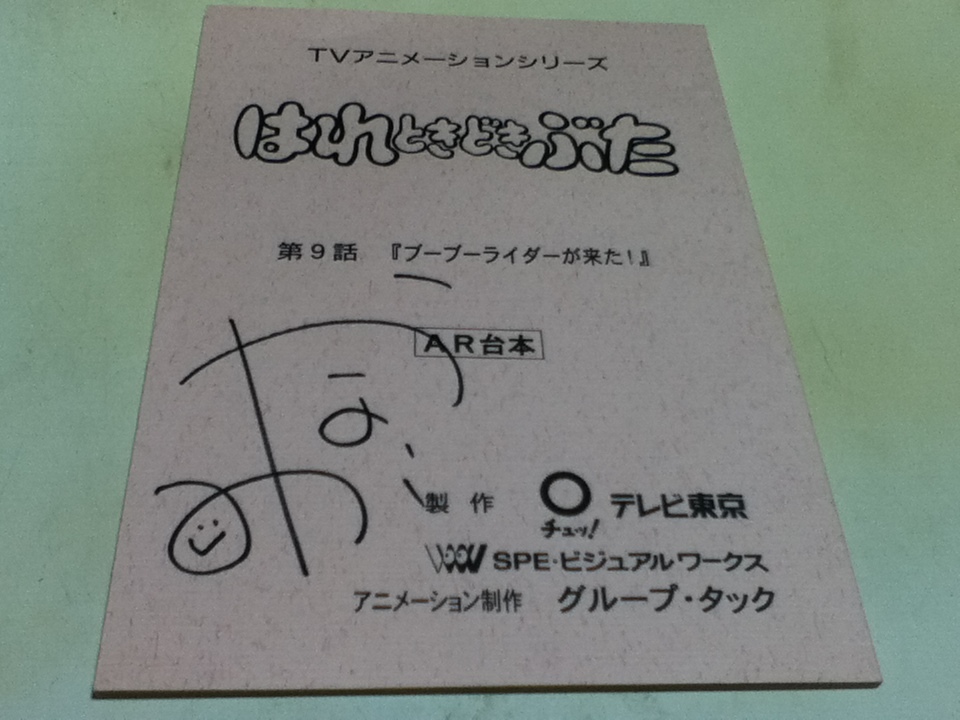 TVアニメーションシリーズ
はれときどきぶた
第9話 『ブーブーライダーが来た!』
AR台本
製作 チュッ! テレビ東京
SPE・ビジュアルワークス
アニメーション制作 グループ・タック